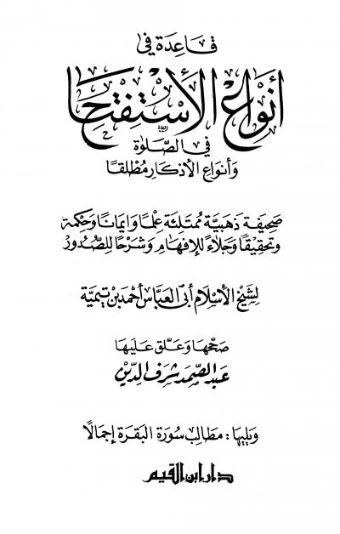 قاعدة في
أنواع الاستفتاح
في الصلوة
وأنواع الأذكار مطلقا
صحيفة ذهبية ممتلئة علما وايمانا وحكمة
وتحقيقا وجلاء للإفهام وشرحا للصدور
لشيخ الأسلام أبى العباس أحمد بن تيمية
صححها وعلق عليها
عبد الصمد شرف الدين
ويليها: مطالب سورة البقرة إجمالا
دار ابن القيم